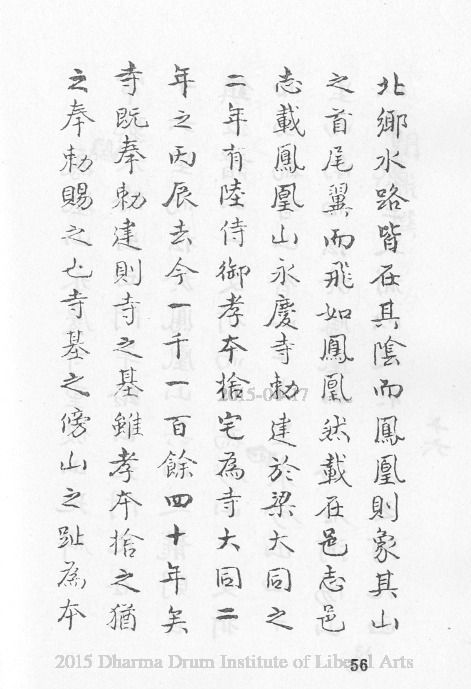 北鄉水路皆在其陰而鳳凰則象其山
之首尾翼而飛如鳳凰然載在邑志邑
志載鳳凰山永慶寺勅建於梁大同之
二年有陸侍御孝本捨宅為寺大同二
年之丙辰去今一千一百餘四十年矣
寺既奉勅建則寺之基雖孝本捨之猶
之奉勅賜之也寺基之傍山之趾為本
56
2015 Dharma Drum Institute of Liberal Arts